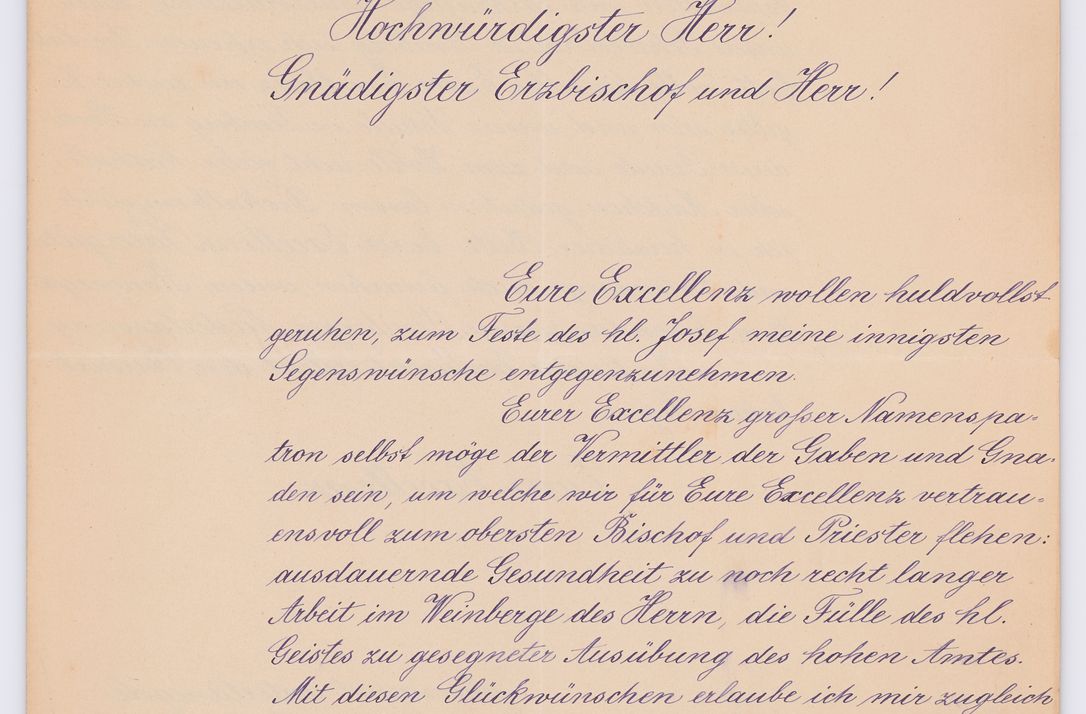 Hochwürdigster Herr!
Gnädigster Erzbischof und Herr!
Eure Excellenz wollen huldvollst
geruhen, zum Feste des hl. Josef meine innigsten
Segenswünsche entgegenzunehmen.
Eurer Excellenz großer Namenspa-
tron selbst möge der Vermittler der Gaben und Gna-
den sein, um welche wir für Eure Excellenz vertrau-
ensvoll zum obersten Bischof und Priester flehen:
ausdauernde Gesundheit zu noch recht langer
Arbeit im Weinberge des Herrn, die Fülle des hl.
Geistes zu gesegneter Ausübung des hohen Amtes.
Mit diesen Glückwünschen erlaube ich mir zugleich